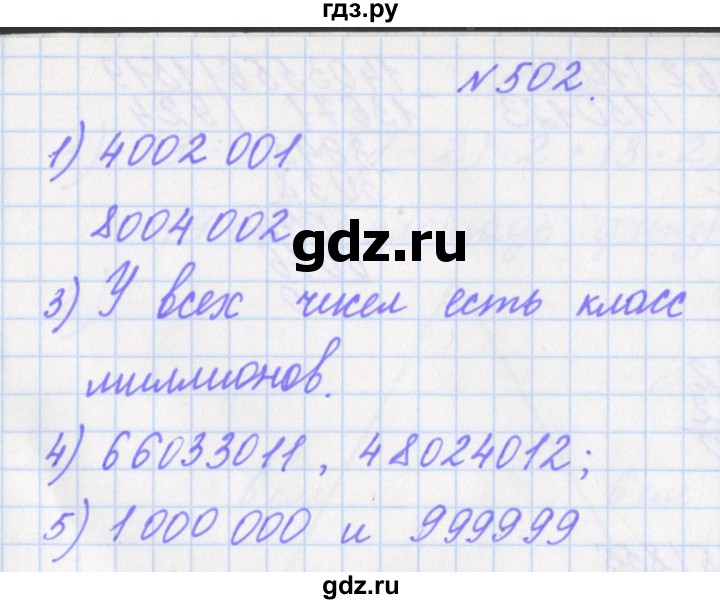 гдз.ру
№ 502.
1) 4002 001
8004 002
gdz.ru
3) У всех чисел есть класс
миллионов.
4) 66033011, 48024012;
5) 1 000 000 и 999999
gdz.ru